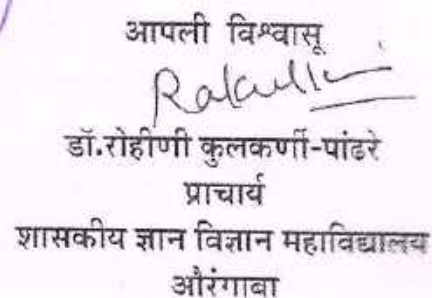 आपली विश्वासू
डॉ.रोहीणी कुलकर्णी-पांढरे
प्राचार्य
शासकीय ज्ञान विज्ञान महाविद्यालय
औरंगाबा